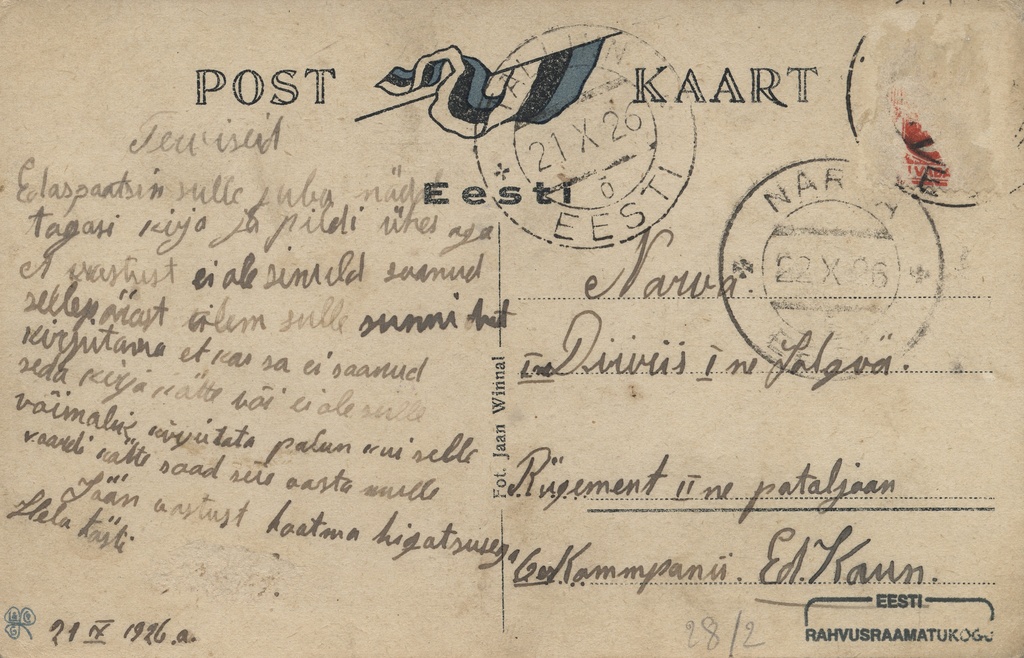 POST KAART
Eesti
TALLINN
21 X 26
6
EESTI
NARVA
22 X 26
Terviseid
Edaspaatsin sulle juba nädal
tagasi kirja ja pildi ühes aga
et vastust ei ole sinuld saanud
sellepärast olem sulle sunnitut
kirjutama et kas sa ei saanud
seda kirja kätte või ei ole sulle
võimalik kirjutata palun kui selle
kaardi kätte saad siis vasta mulle
Jään vastust ootma higatsusega
Hela hästi
21 IX 1926.a.
Fot. Jaan Winnal
Narva.
I ne Diiviis I ne Jalgvä.
Rügement II ne pataljaan
6es Kammpanii. Ed. Kaun.
28/2
EESTI
RAHVUSRAAMATUKOGU